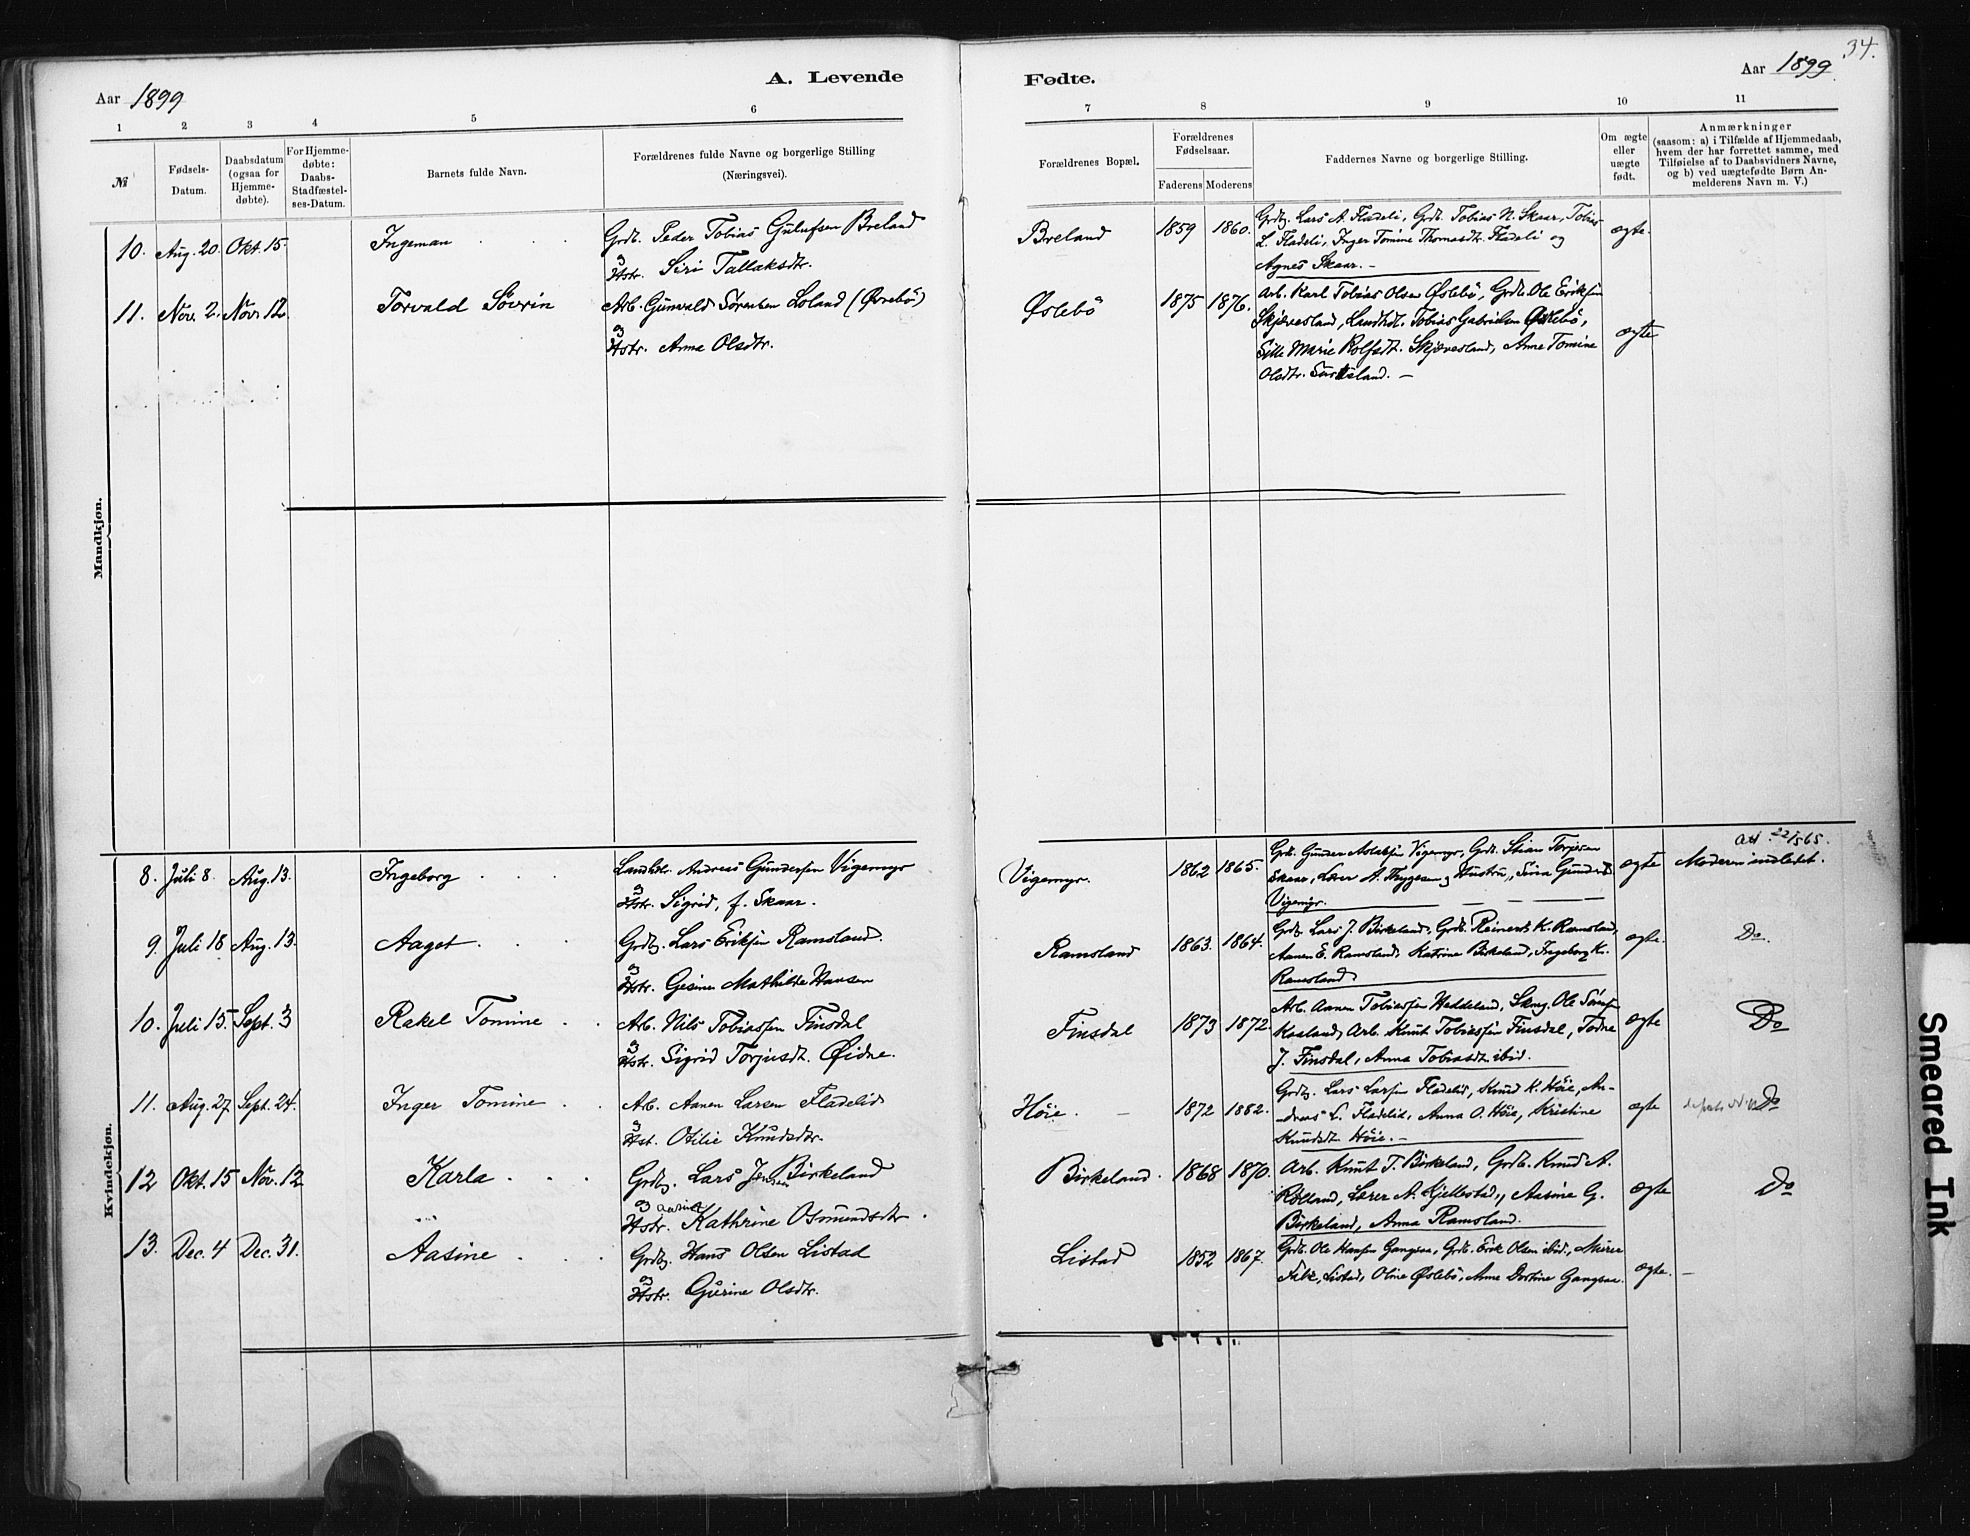 34.
Aar 1899
A. Levende
Fødte.
Aar 1899.
1 2 3 4 5 6 7 8 9 10 11
№
Fødsels-
Datum.
Daabsdatum
(ogsaa for
Hjemme-
døbte).
For Hjemme-
døbte:
Daabs-
Stadfæstel-
ses-Datum.
Barnets fulde Navn.
Forældrenes fulde Navne og borgerlige Stilling
(Næringsvei).
Forældrenes Bopæl.
Forældrenes
Fødselsaar.
Faderens Moderens
Faddernes Navne og borgerlige Stilling.
Om ægte
eller
uægte
født.
Anmærkninger
(saasom: a) i Tilfælde af Hjemmedaab,
hvem der har forrettet samme, med
Tilføielse af to Daabsvidners Navne,
og b) ved uægtefødte Børn An-
melderens Navn m. V.)
Mandkjøn.
10. Aug. 20. Okt. 15. Ingeman
Grdb. Peder Tobias Gulufsen Breland
og
Hstr. Siri Tallaksdtr.
Breland 1859 1860.
Grdbr. Lars A. Fladeli, Grdb. Tobias N. Skaar, Tobias
L. Fladeli, Inger Tomine Thomasdtr. Fladeli og
Agnes Skaar. –
ægte.
11. Nov. 2. Nov. 12. Torvald Sövrin
Arb. Gunvald Sørensen Loland (Øvrebö)
og
Hstr. Anna Olsdtr.
Øslebö 1875 1876.
Arb. Karl Tobias Olsen Øslebö, Grdb. Ole Eriksen
Skjævesland, Landhdl. Tobias Gabrielsen Øslebö,
Sille Marie Rolfsdt. Skjævesland, Anne Tomine
Olsdtr.
ægte
Kvindekjøn.
8. Juli 8. Aug. 13. Ingeborg
Landhdr. Andreas Gundersen Vigemyr
og
Hstr. Sigrid, f. Skaar.
Vigemyr. 1862 1865.
Grdb. Gunder Aslaksen Vigemyr, Grdb. Stian Torjesen
Skaar, Lærer A. Thygesen og Hustru, Sina Gundersd.
Vigemyr.
ægte
Att. 22/5 65.
Modern indledet.
9. Juli 18. Aug. 13. Aagot
Grdbr. Lars Eriksen Ramsland.
og
Hstr. Gesine Mathilde Hansen
Ramsland 1863. 1864.
Grdbr. Lars J. Birkeland, Grdb. Reinert K. Ramsland,
Aanen E. Ramsland, Katrine Birkeland, Ingeborg K.
Ramsland
ægte.
Do.
10. Juli 15. Sept. 3 Rakel Tomine
Arb. Nils Tobiassen Finsdal
og
Hstr. Sigrid Torjusdt. Øidne.
Finsdal 1873 1872.
Arb. Aanen Tobiassen Heddeland, Ole
Kaaland, Arb. Knut Tobiassen Finsdal, Todne
J. Finsdal, Anna Tobiasdt. ibid.
ægte
Do
11. Aug. 27. Sept. 24. Inger Tomine
Arb. Aanen Larsen Fladelid
og
Hst. Otilie Knudsdtr.
Höie. – 1872 1882.
Grdbr. Lars Larsen Fladelid, Knud K. Höie, An-
dreas L. Fladelid, Anna O. Höie, Kristine
Knudsdt. Höie. –
ægte
Do
12 Okt. 15 Nov. 12 Karla
Grdbr. Lars Jensen Birkeland
og Aasine
Hstr. Kathrine Osmundsdtr.
Birkeland. 1868 1870.
Arb. Knut T. Birkeland, Grdb. Knud A.
Rölland, Lærer A. Kjellestad, Aasine G.
Birkeland, Anna Ramsland.
ægte
Do
13. Dec. 4 Dec. 31. Aasine
Grdbr. Hans Olsen Listad
og
Hstr. Gurine Olsdtr.
Listad 1852 1867.
Grdb. Ole Hansen Gangsaa, Grdb. Erik Olsen ibid.,
Listad, Oline Øslebö, Anne Dortine Gangsaa.
ægte. –
Smeared Ink